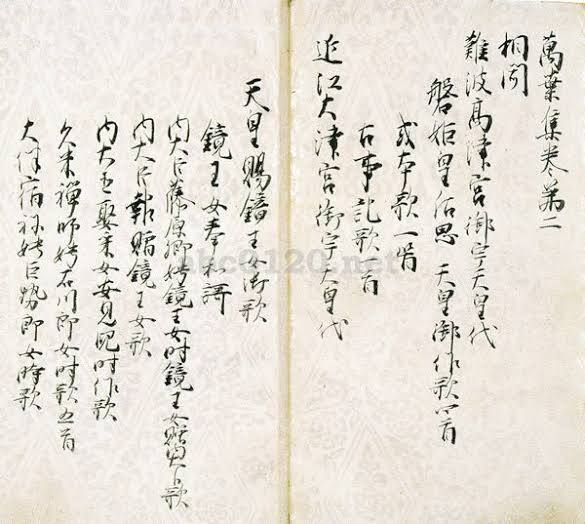 萬葉集巻第二
相聞
難波髙津宮御宇天皇代
磐姫皇后思天皇御作歌四首
或本歌一首
古事記歌一首
近江大津宮御宇天皇代
天皇賜鏡王女御歌
鏡王女奉和謌
内大臣藤原卿娉鏡王女時鏡王女贈内大臣歌
内大臣報贈鏡王女歌
内大臣娶采女安見児時作歌
久米禅師娉石川郎女時歌五首
大伴宿祢娉巨勢郎女時歌